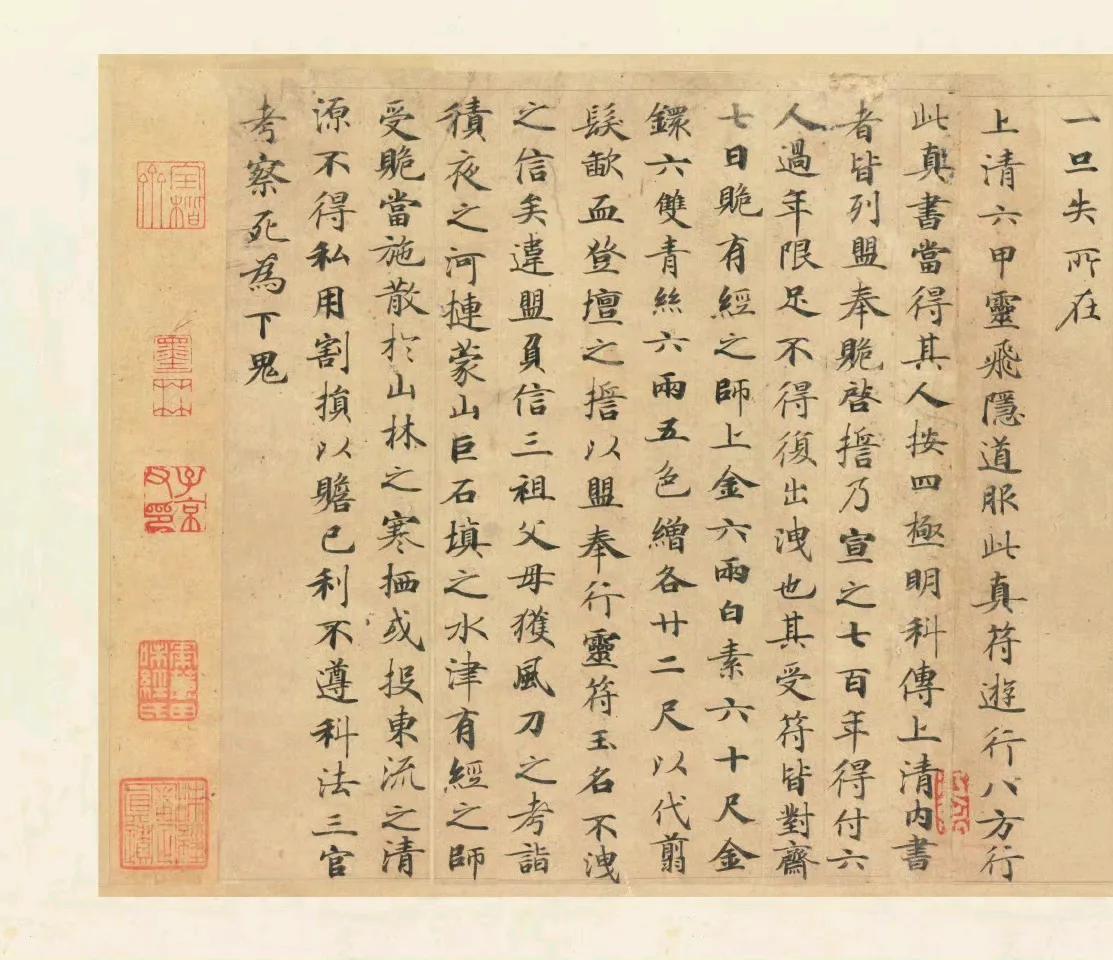 一旦失所在
上清六甲靈飛隱道服此真符遊行八方行
此真書當得其人按四極明科傳上清內書
者皆列盟奉贍啓擔乃宣之七百年得付六
人過年限足不得復出洩也其受符皆對齋
七日贍有經之師上金六兩白素六十尺金
鐶六雙青絲六兩五色繒各廿二尺以代翦
髮歃血登壇之擔以盟奉行靈符玉名不洩
之信矣違盟負信三祖父母獲風刀之考詣
積夜之河摙蒙山巨石填之水津有經之師
受贍當施散於山林之寒栖或投東流之清
源不得私用割損以贍己利不遵科法三官
考察死為下鬼
墨林
子京